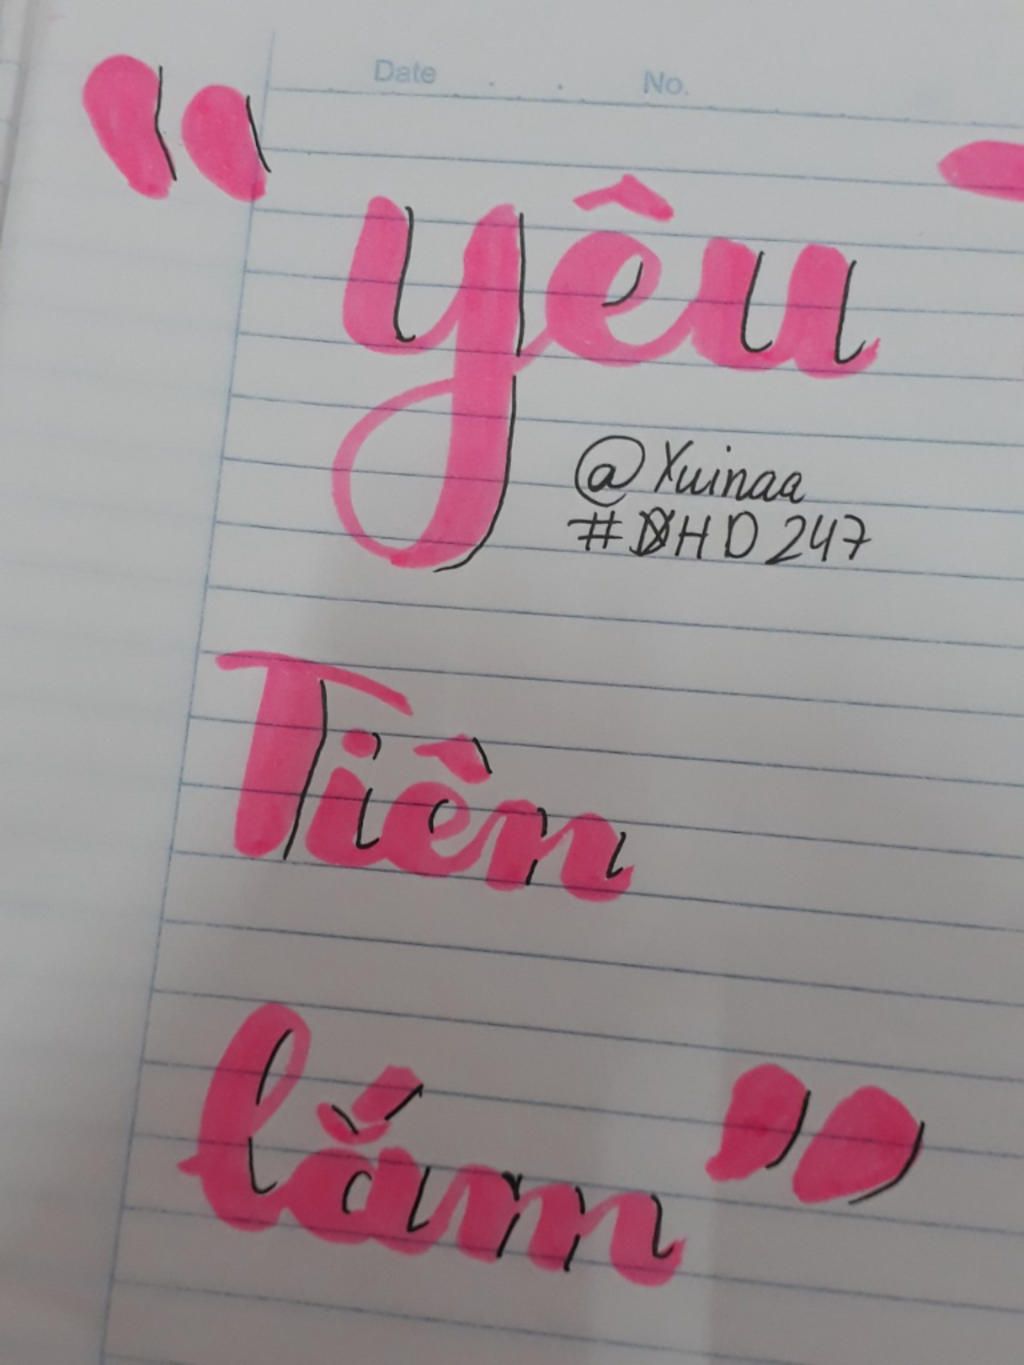 Date No.
“yêu
@Xuinaa
#DHD247
Tiên
lắm”